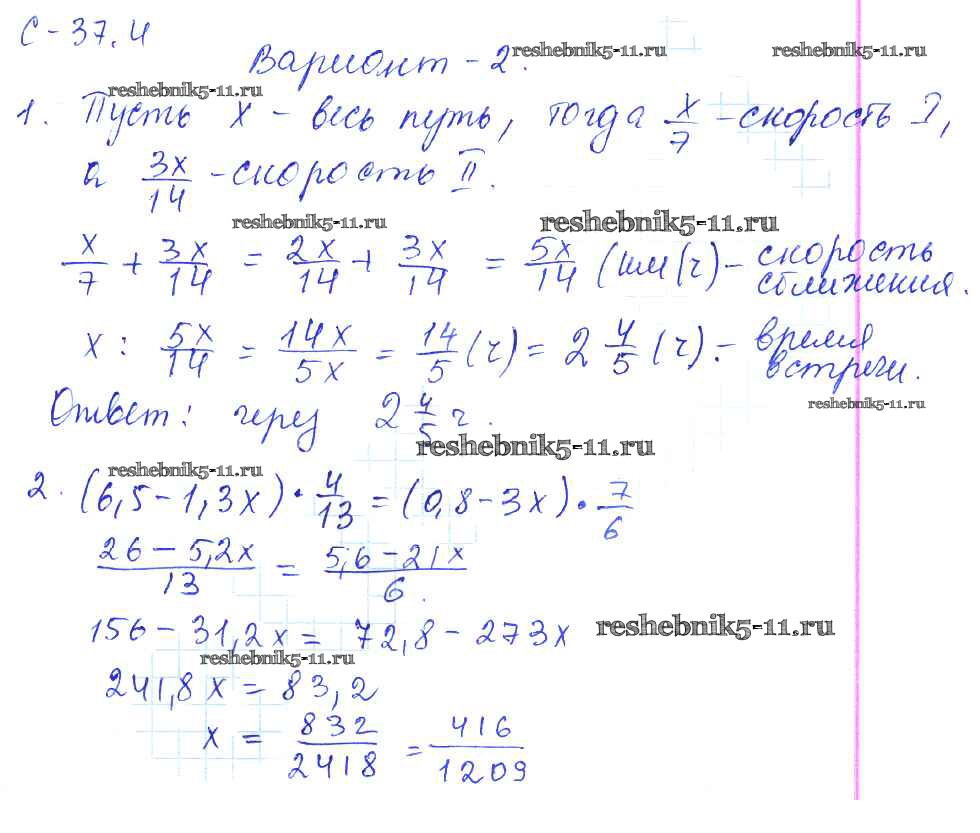 С-37.4
reshebnik5-11.ru reshebnik5-11.ru
Вариант - 2.
reshebnik5-11.ru
1. Пусть x - весь путь, тогда x/7 - скорость I,
а 3x/14 - скорость II.
reshebnik5-11.ru reshebnik5-11.ru
x/7 + 3x/14 = 2x/14 + 3x/14 = 5x/14 (км/ч) - скорость сближения.
x : 5x/14 = 14x/5x = 14/5 (ч) = 2 4/5 (ч). - время встречи.
reshebnik5-11.ru
Ответ: через 2 4/5 ч.
reshebnik5-11.ru
reshebnik5-11.ru
2. (6,5 - 1,3x) · 4/13 = (0,8 - 3x) · 7/6
(26 - 5,2x)/13 = (5,6 - 21x)/6.
156 - 31,2x = 72,8 - 273x
reshebnik5-11.ru
reshebnik5-11.ru
241,8x = 83,2
x = 832/2418 = 416/1209